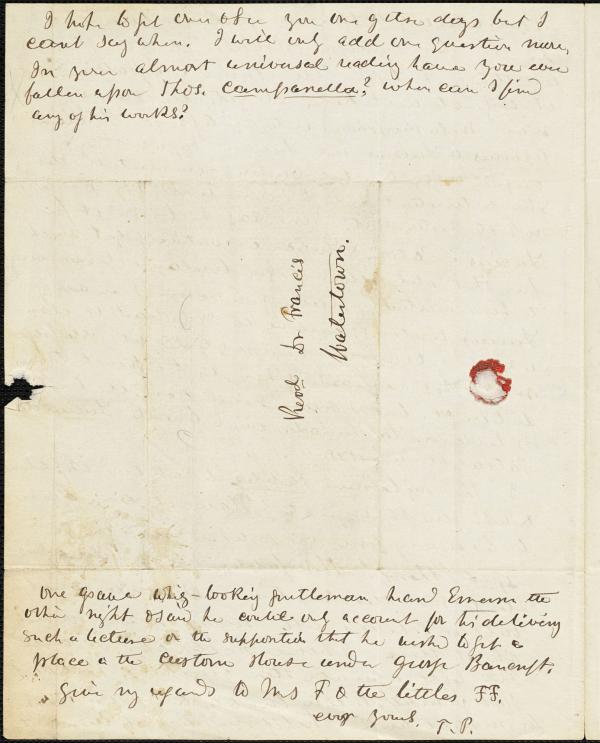 I hope to get over & see you one of these days but I
cant say when. I will only add one question more,
In your almost universal reading have you ever
fallen upon Thos. Campanella? where can I find
any of his works?
Revd Dr Francis
Watertown.
One grave whig-looking gentleman heard Emerson the
other night & said he could only account for his delivering
such a lecture on the supposition that he wished to get a
place in the Custom House under George Bancroft.
Give my regards to Mrs F & the littles FF.
ever yours,
T.P.